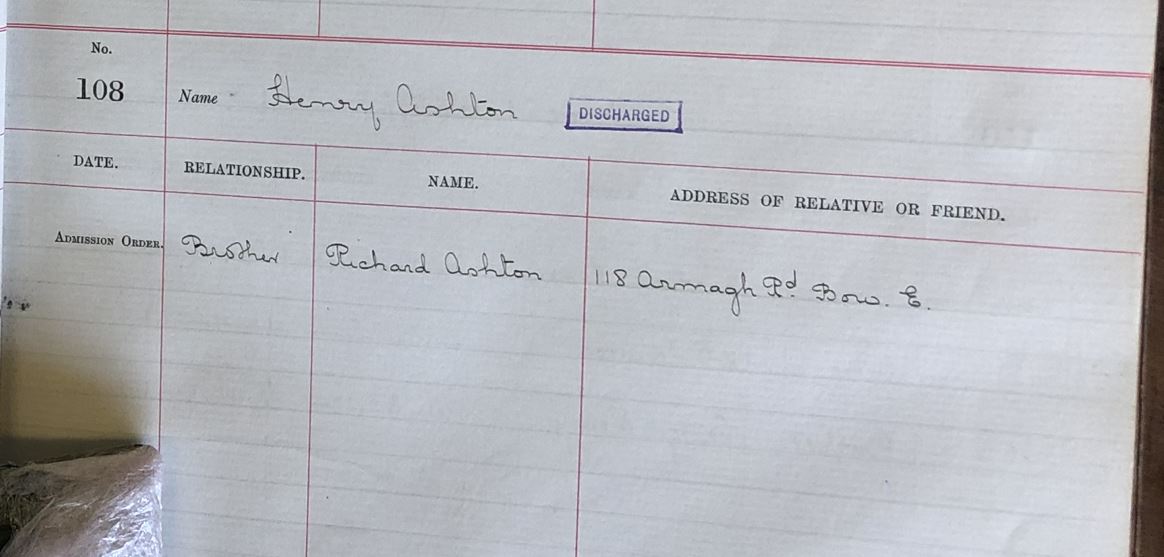 No.
108 Name Henry Ashton DISCHARGED
DATE. RELATIONSHIP. NAME. ADDRESS OF RELATIVE OR FRIEND.
ADMISSION ORDER. Brother Richard Ashton 118 Armagh Rd. Bow. E.